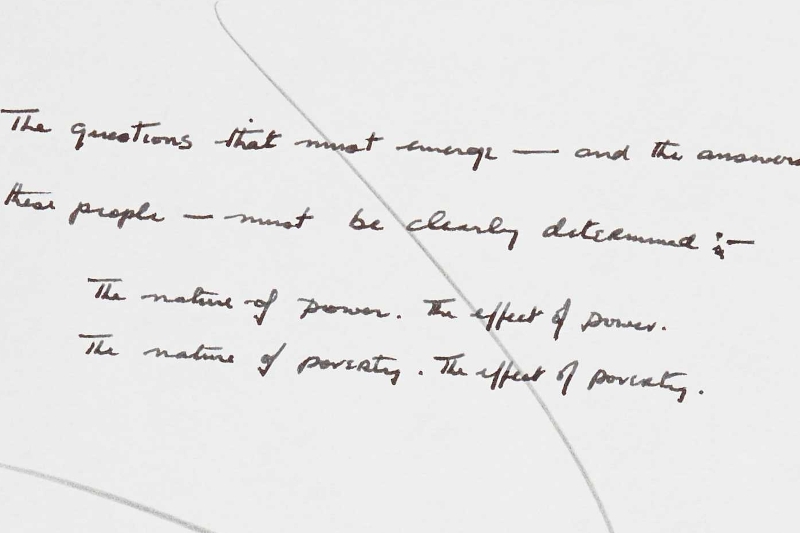 The questions that must emerge — and the answers
these people — must be clearly determined :—
The nature of power. The effect of power.
The nature of poverty. The effect of poverty.